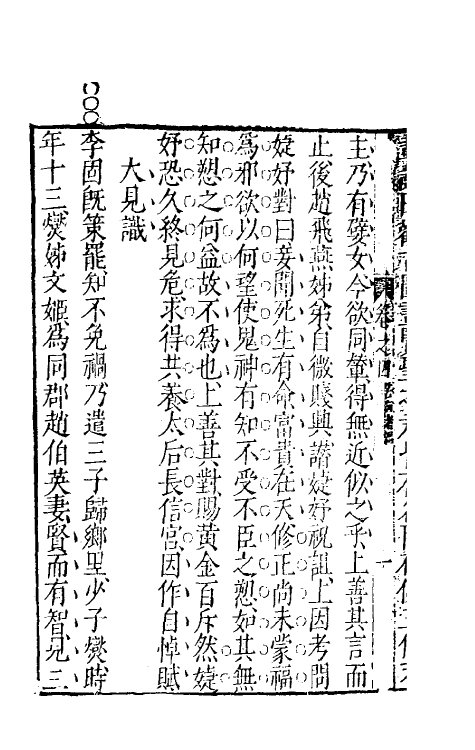 主乃有嬖女今欲同輦得無近似之乎上善其言而
止後趙飛燕姊弟自微賤興譖婕妤祝詛上因考問
婕妤對曰妾聞死生有命富貴在天修正尚未蒙福
為邪欲以何望使鬼神有知不受不臣之愬如其無
知愬之何益故不為也上善其對賜黃金百斤然婕
妤恐久終見危求得共養太后長信宮因作自悼賦
大見識
李固旣策罷知不免禍乃遣三子歸鄉里少子燮時
年十三燮姊文姬為同郡趙伯英妻賢而有智兄三